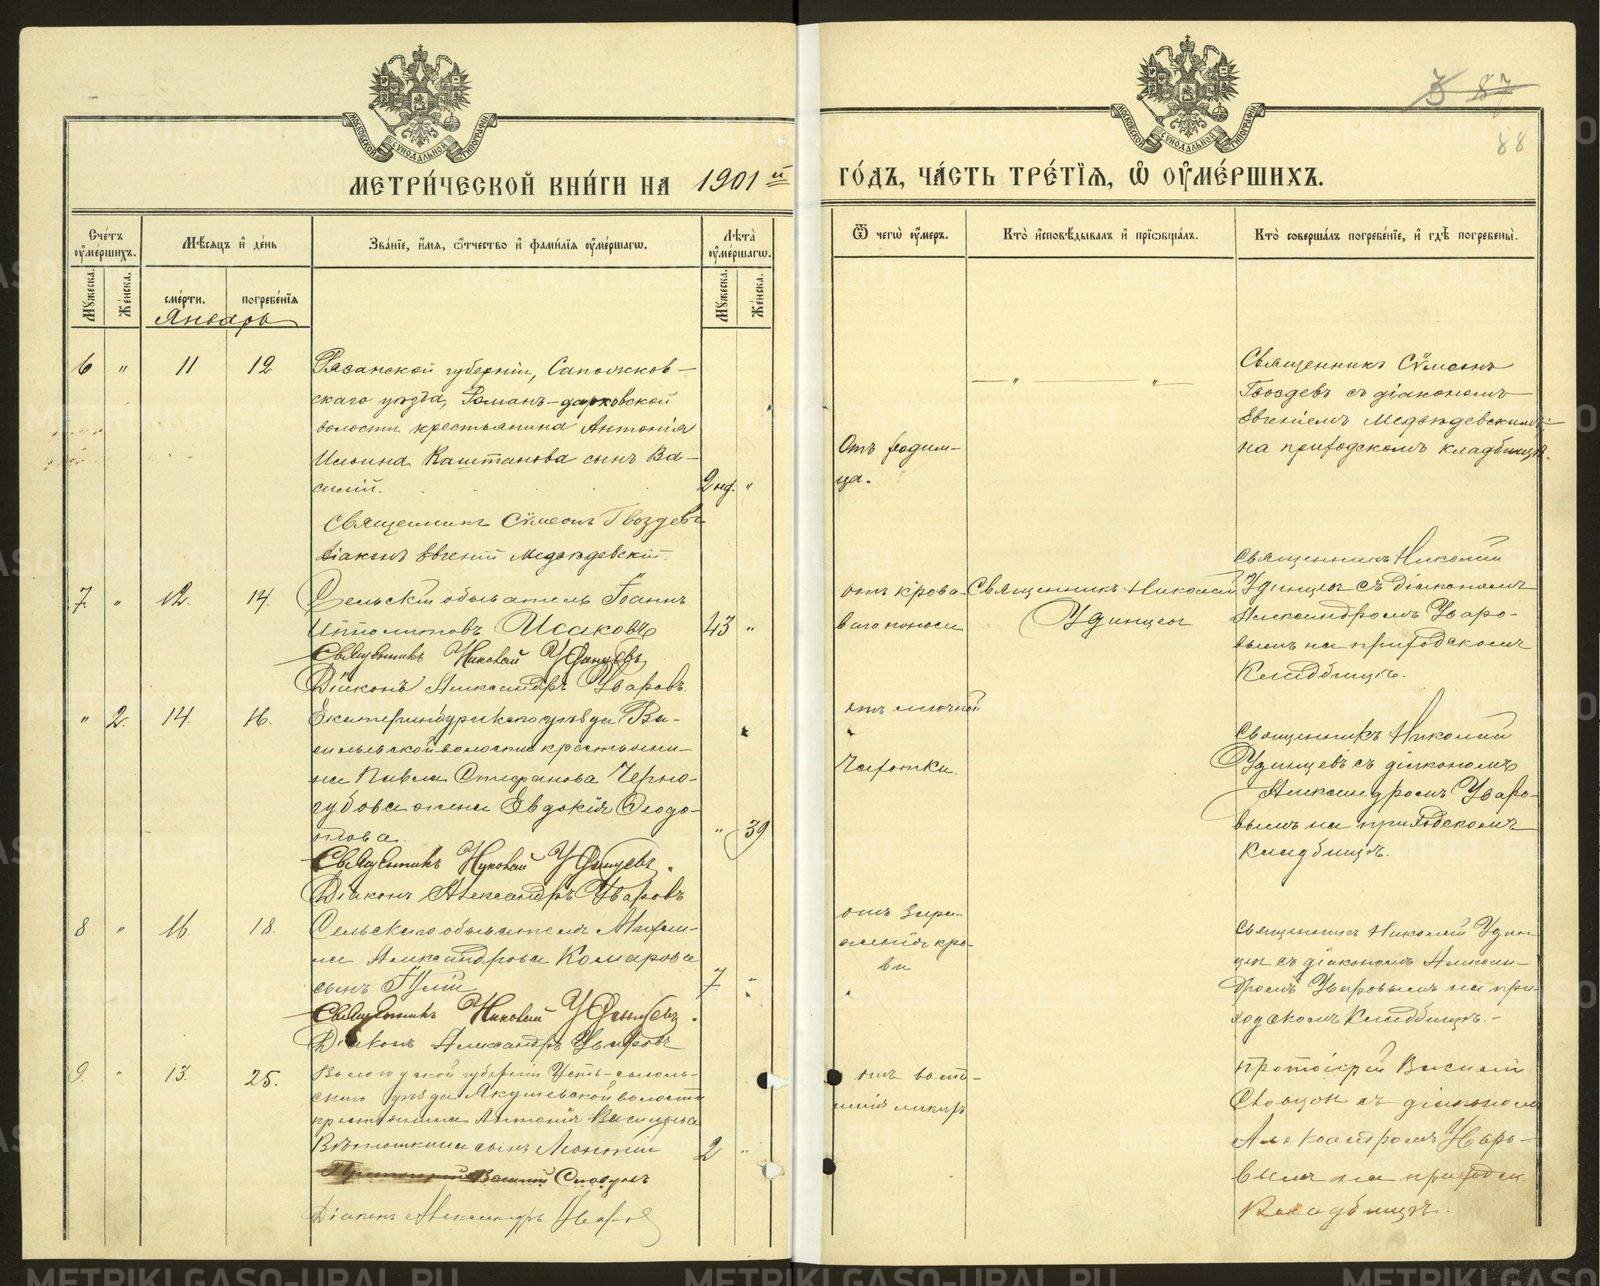 МЕТРИ́ЧЕСКОЙ КНИ́ГИ НА 1901 й ГО́ДЪ, ЧА́СТЬ ТРЕ́ТЇѦ, Ѡ ОУ҆МЕ́РШИХЪ.
МОСКОВСКОЙ СѴНОДАЛЬНОЙ ТИПОГРАФІИ
МОСКОВСКОЙ СѴНОДАЛЬНОЙ ТИПОГРАФІИ
87
88
Сче́тъ оу҆ме́ршихъ.
Мѣ́сяцъ и҆ де́нь
Зва́нїе, и҆́мѧ, ѻ҆́тчество и҆ фами́лїѧ оу҆ме́ршагѡ.
Лѣ́та оу҆ме́ршагѡ.
Ѿ чегѡ̀ оу҆́меръ.
Кто̀ и҆сповѣ́дывалъ и҆ прїѡбща́лъ.
Кто̀ соверша́лъ погребе́нїе, и҆ гдѣ̀ погребены̀.
Мꙋ́жеска. Же́нска. сме́рти. погребе́нїѧ Мꙋ́жеска. Же́нска.
Январь
6 " 11 12
Рязанской губерніи, Сапожков-
скаго уѣзда, Роман-дарковской
волости крестьянина Антонія
Ильина Каштанова сынъ Ва-
силій. 2 нд. "
Священникъ Сѵмеонъ Гвоздевъ
Діаконъ Евгеній Медвѣдевскій.
Отъ родим-
ца.
Священникъ Сѵмеонъ
Гвоздевъ съ діакономъ
Евгеніемъ Медвѣдевскимъ
на приходскомъ кладбищѣ.
7. " 12. 14.
Сельскій обыватель Іоаннъ
Ипполитовъ Исаковъ 43 "
Священникъ Николай Удинцевъ
Діаконъ Александръ Уваровъ.
отъ крова-
ваго поноса
Священникъ Николай
Удинцевъ
Священникъ Николай
Удинцевъ съ діакономъ
Александромъ Уваро-
вымъ на приходскомъ
Кладбищѣ.
" 2. 14. 16.
Екатеринбургскаго уѣзда Ва-
сильевской волости крестьяни-
на Павла Стефанова Черно-
губова жена Евдокія Ѳеодо-
това. " 39
Священникъ Николай Удинцевъ.
Діаконъ Александръ Уваровъ
отъ
Чахотки.
Священникъ Николай
Удинцевъ съ діакономъ
Александромъ Уваро-
вымъ на приходскомъ
Кладбищѣ.
8 " 16. 18.
Сельскаго обывателя Михаи-
ла Александрова Комарова
сынъ 7. "
Священникъ Николай Удинцевъ.
Діаконъ Александръ Уваровъ
отъ зара-
женія кро-
ви
Священникъ Николай Удин-
цевъ съ діакономъ Алексан-
дромъ Уваровымъ на при-
ходскомъ Кладбищѣ.
9. " 13. 25.
Вологодской губерніи Усть-сысоль-
скаго уѣзда волости
крестьянина Антонія Васильева
сынъ 2 "
Протоіерей Василій Словцовъ
Діаконъ Александръ Уваровъ
отъ воспа-
ленія
Протоіерей Василій
Словцовъ съ діакономъ
Александромъ Уваро-
вымъ на приходск.
Кладбищѣ.
METRIKI.GASO-URAL.RU